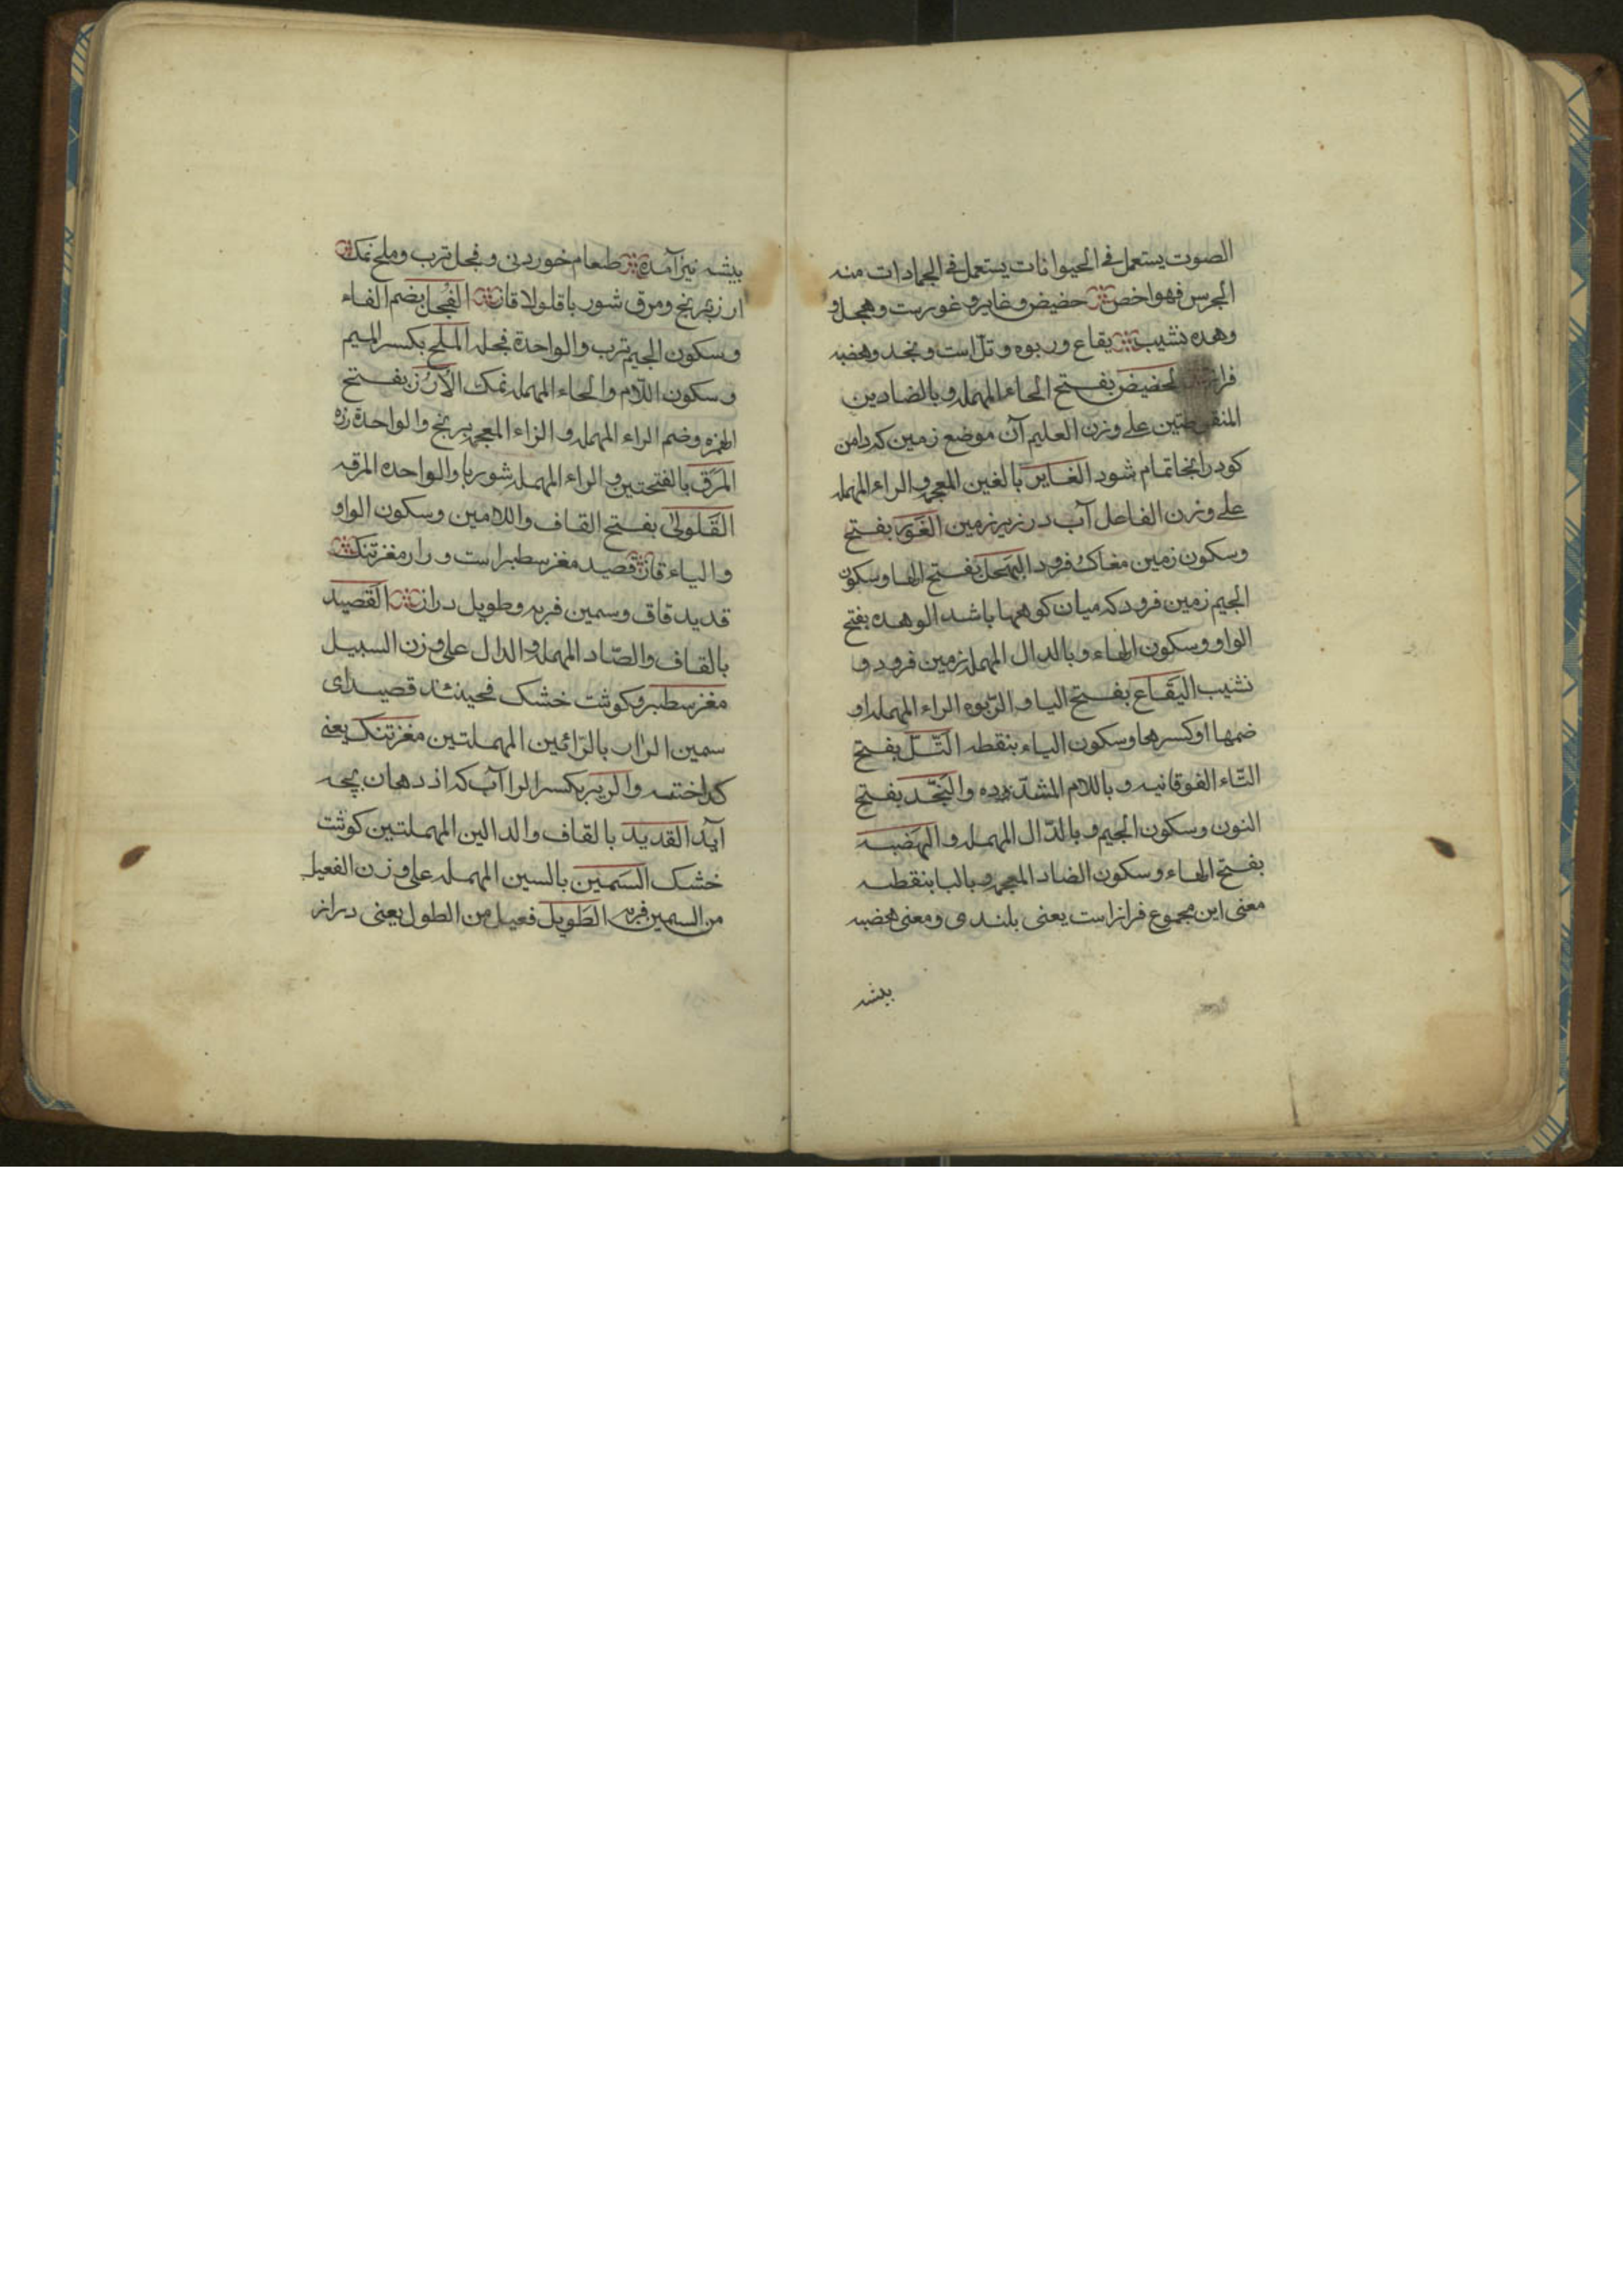 الصوت یستعمل فی الحیوانات یستعمل فی الجمادات منه
الجرس فهو اخص حضیض و غایر و غورست و هجل و
وهده نشیب یقاع و ربوه و تلّ است و نجد و هضبه
الحضیض بفتح الحاء المهمله و بالضادین
المنقوطتین علی وزن العلیم آن موضع زمین که دامن
کوه را آنجا تمام شود الغایر بالغین المعجمه و الراء المهمله
علی وزن الفاعل آب در زیر زمین الغَوَر بفتح
و سکون زمین مغاک و فرود الهَجل بفتح الها و سکون
الجیم زمین فرود که میان کوهها باشد الوهده بفتح
الواو و سکون الهاء و بالدال المهمله زمین فرود و
نشیب الیَقَاع بفتح الیا و الرّبوه الراء المهمله او
ضمها او کسرها و سکون الیاء بنقطه التّلّ بفتح
التّاء الفوقانیه و باللام المشدّده و النَجّد بفتح
النون و سکون الجیم و بالدّال المهمله و الهَضبه
بفتح الهاء و سکون الضاد المعجمه و بالبا بنقطه
معنی این مجموع فراز است یعنی بلندی و معنی هضبه
بیشه
بیشه نیز آمده طعام خوردنی و فجل ترب و ملح نمک
ارز برنج و مرق شوربا قلولا قاز الفُجل بضم الفاء
و سکون الجیم ترب و الواحدة فجله الملح بکسر المیم
و سکون اللّام و الحاء المهمله نمک الاَرُز بفتح
الهمزه و ضم الراء المهمله و الزاء المعجمه برنج و الواحدة رزه
المَرَق بالفتحتین و الراء المهمله شوربا و الواحده المرقه
القَلَولیٰ بفتح القاف و اللامین و سکون الواو
و الیاء قاز قصید مغز سطبر است و رار مغز تنک
قدید قاق و سمین فربه و طویل دراز القَصید
بالقاف و الصّاد المهمله و الدال علی وزن السبیل
مغز سطبر و کوشت خشک فحینئذ قصید ای
سمین الرّار بالرّائین المهملتین مغز تنک یعنی
کداخته و الریر بکسر الرا آب که از دهان بچه
آید القدید بالقاف و الدالین المهملتین کوشت
خشک السَمین بالسین المهمله علی وزن الفعیل
من السمین فربه الطَویل فعیل من الطول یعنی دراز